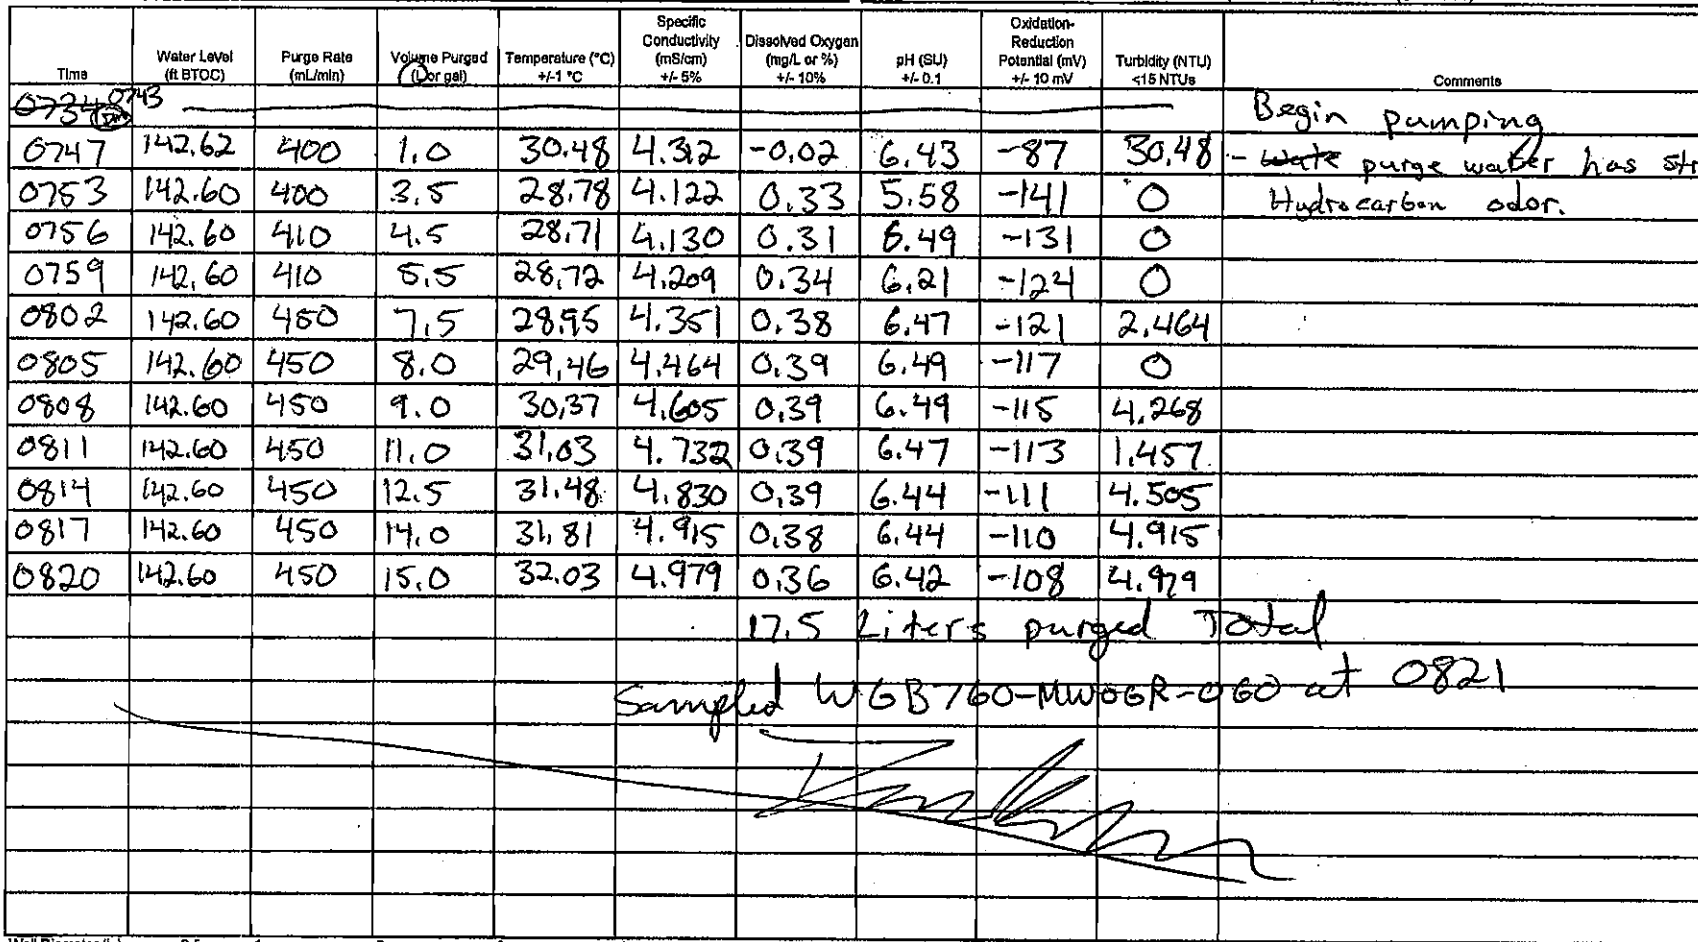 Time Water Level (ft BTOC) Purge Rate (mL/min) Volume Purged (L or gal) Temperature (°C) +/-1 °C Specific Conductivity (mS/cm) +/- 5% Dissolved Oxygen (mg/L or %) +/- 10% pH (SU) +/- 0.1 Oxidation-Reduction Potential (mV) +/- 10 mV Turbidity (NTU) <15 NTUs Comments
0734 0743 Begin pumping
0747 142.62 400 1.0 30.48 4.312 -0.02 6.43 -87 30.48 - wate purge water has str
0753 142.60 400 3.5 28.78 4.122 0.33 5.58 -141 0 Hydrocarbon odor.
0756 142.60 410 4.5 28.71 4.130 0.31 6.49 -131 0
0759 142.60 410 5.5 28.72 4.209 0.34 6.21 -124 0
0802 142.60 450 7.5 28.95 4.351 0.38 6.47 -121 2.464
0805 142.60 450 8.0 29.46 4.464 0.39 6.49 -117 0
0808 142.60 450 9.0 30.37 4.605 0.39 6.49 -115 4.268
0811 142.60 450 11.0 31.03 4.732 0.39 6.47 -113 1.457
0814 142.60 450 12.5 31.48 4.830 0.39 6.44 -111 4.505
0817 142.60 450 14.0 31.81 4.915 0.38 6.44 -110 4.915
0820 142.60 450 15.0 32.03 4.979 0.36 6.42 -108 4.979
17.5 Liters purged Total
Sampled WGB760-MW06R-060 at 0821